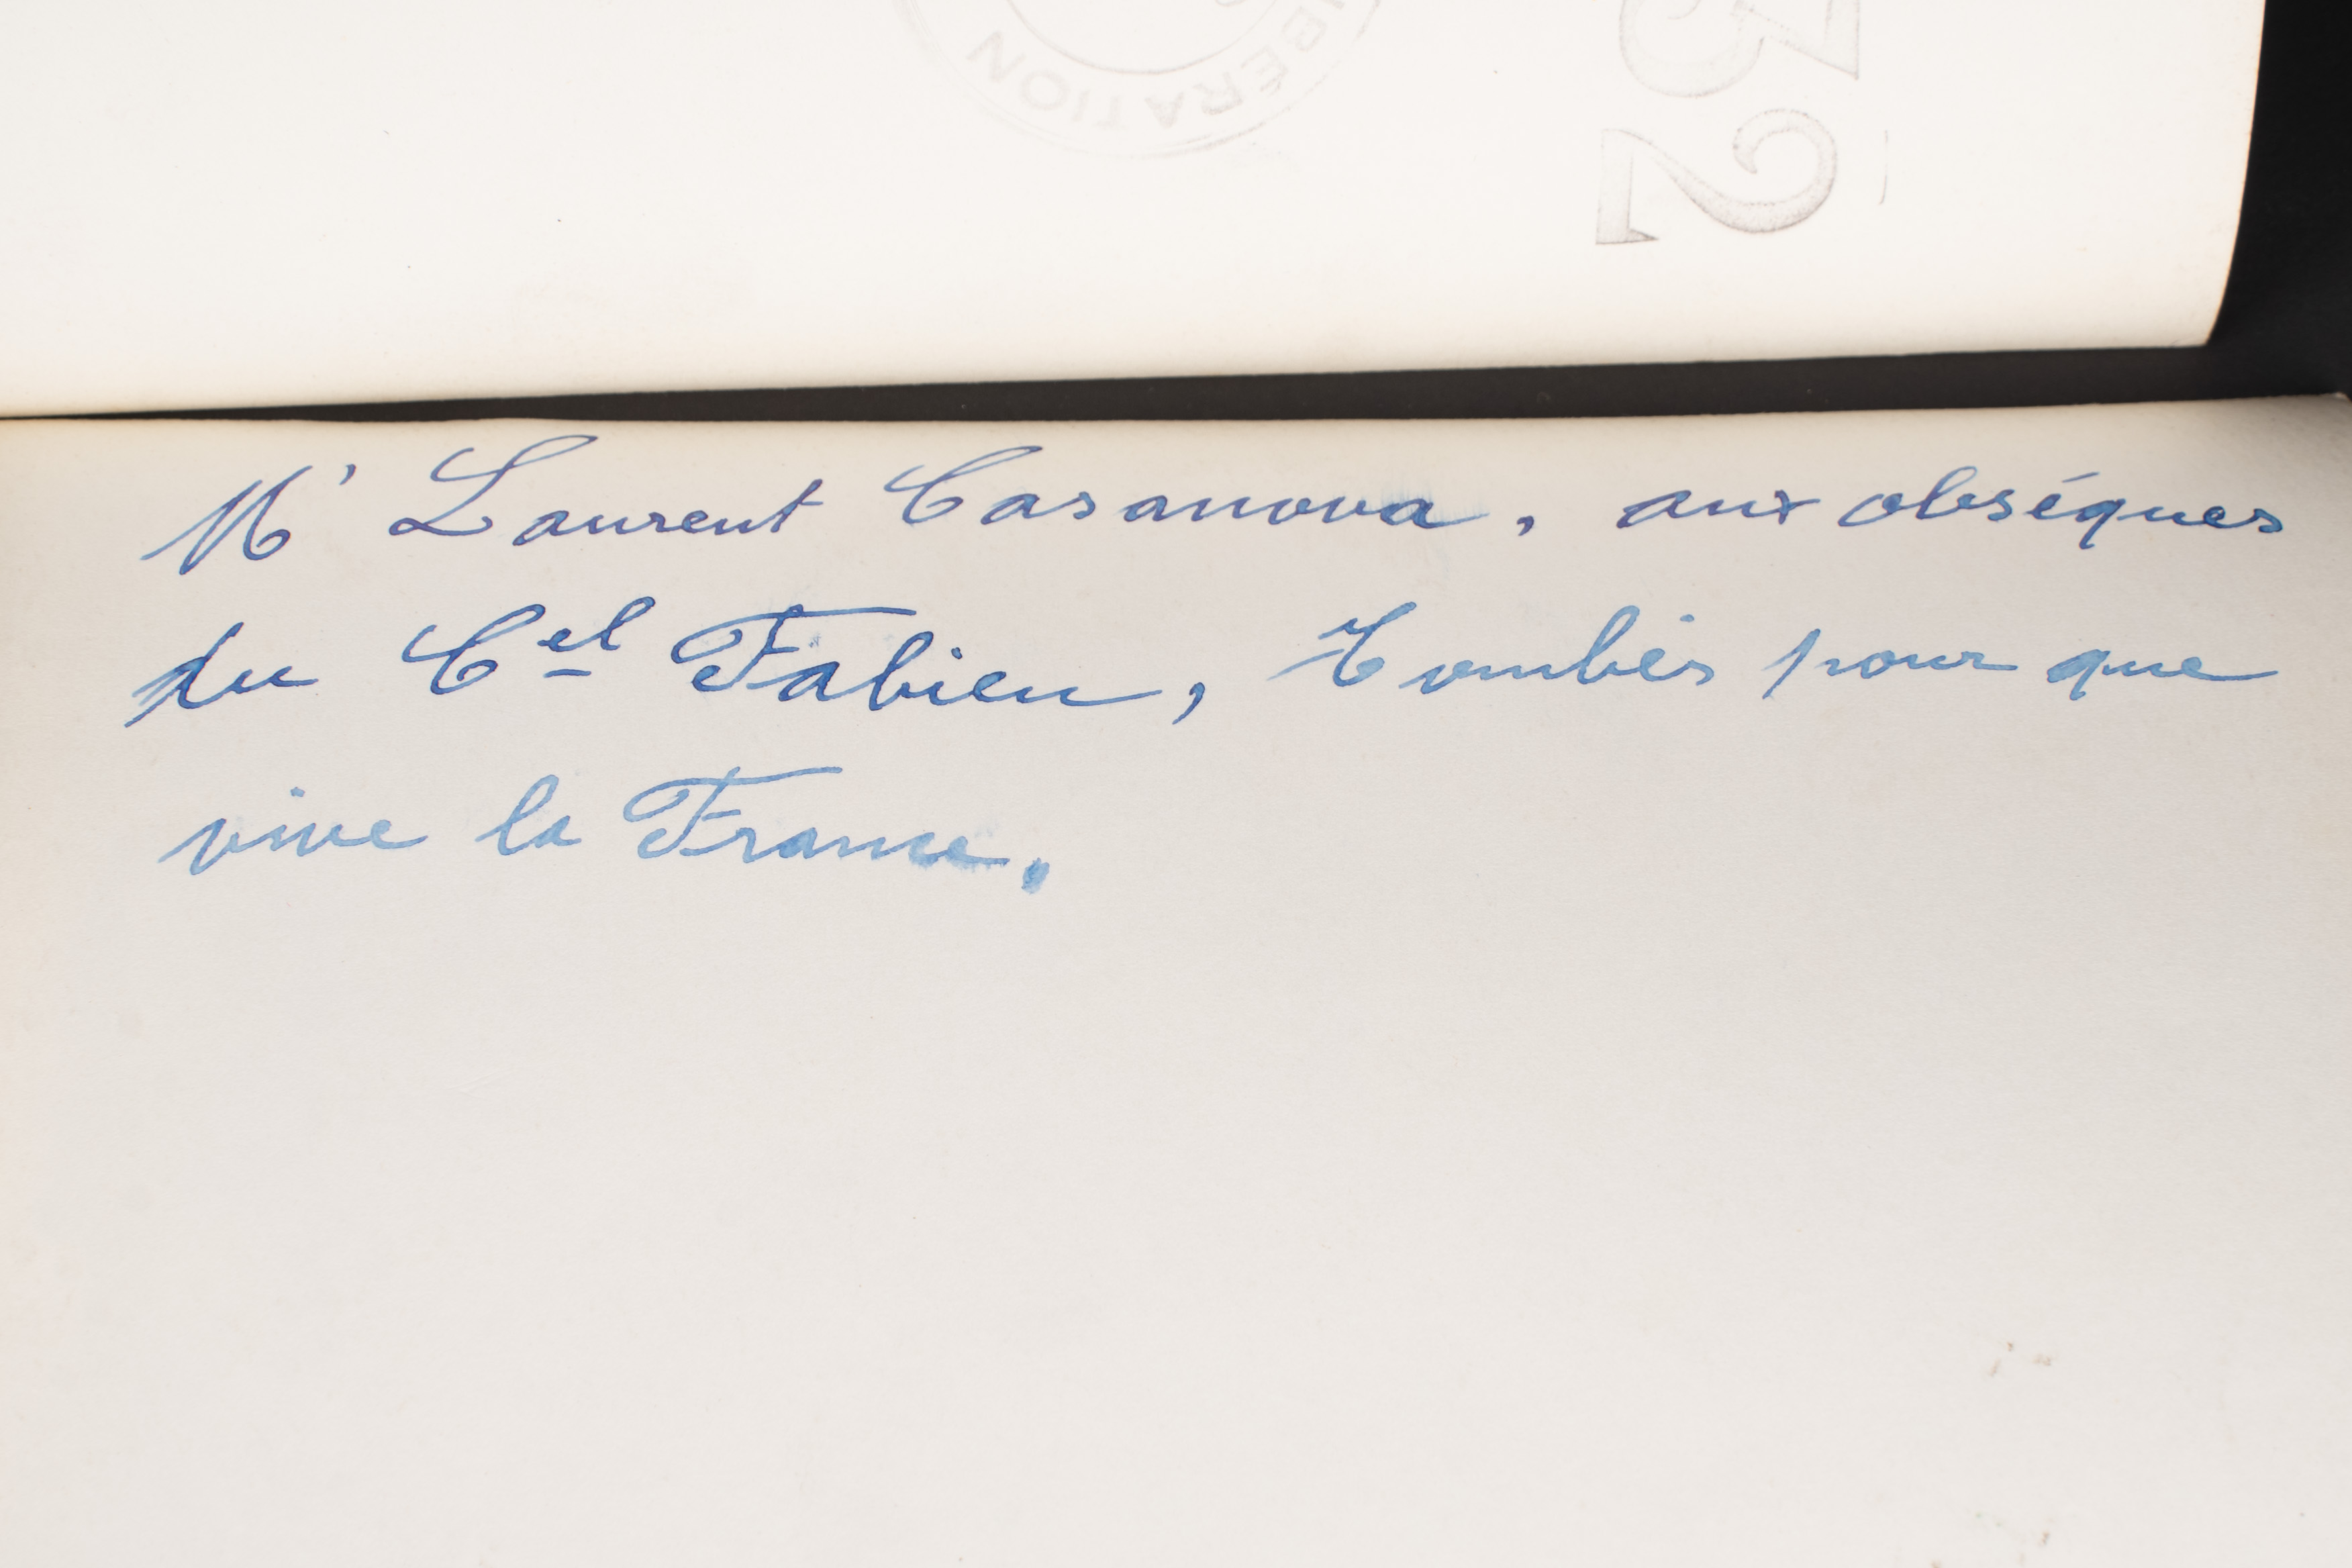 LIBÉRATION
32
M' Laurent Casanova, aux obséques
du Cel Fabien, Tombés pour que
vive la France.